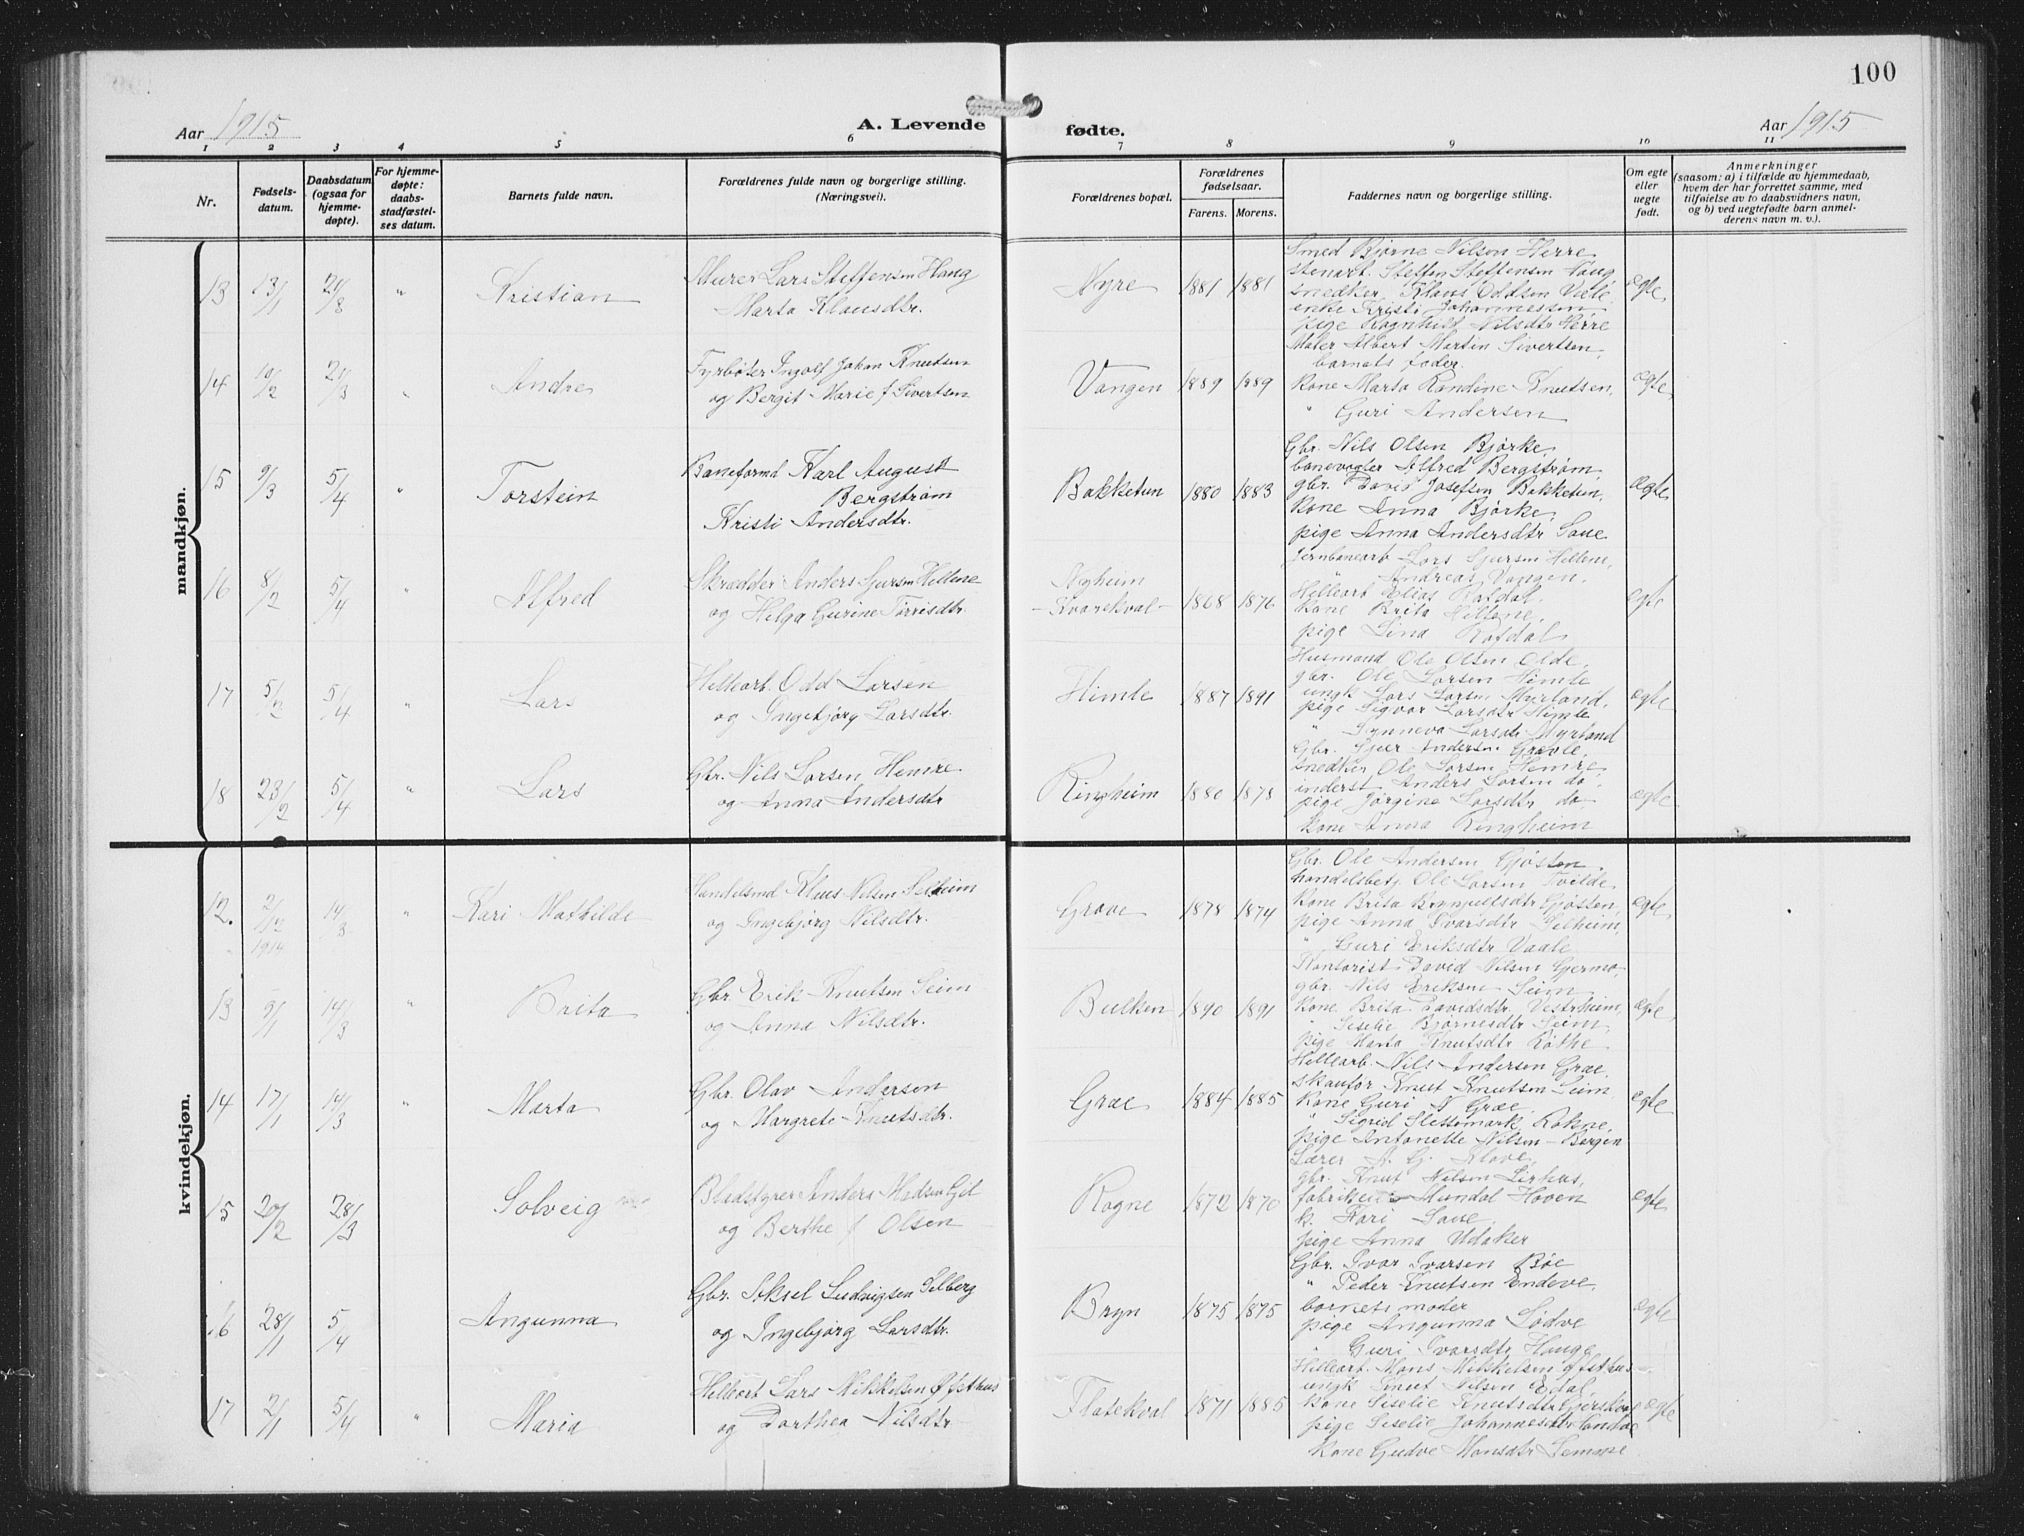 100
Aar 1915
A. Levende
fødte.
Aar 1915
1 2 3 4 5 6 7 8 9 10 11
Nr.
Fødsels-
datum.
Daabsdatum
(ogsaa for
hjemme-
døpte).
For hjemme-
døpte:
daabs-
stadfæstel-
ses datum.
Barnets fulde navn.
Forældrenes fulde navn og borgerlige stilling.
(Næringsvei).
Forældrenes bopæl.
Forældrenes
fødselsaar.
Farens. Morens.
Faddernes navn og borgerlige stilling.
Om egte
eller
uegte
født.
Anmerkninger
(saasom: a) i tilfælde av hjemmedaab,
hvem der har forrettet samme, med
tilføielse av to daabsvidners navn,
og b) ved uegtefødte barn anmel-
derens navn m. v.).
mandkjøn.
13 13/1 21/3 " Kristian
Murer Lars Steffensen Haug
Marta Klausdtr.
Nyre 1881 1881
Smed Bjørne Nilsen Herre
stenarb. Steffen Steffensen Haug
snedker Klaus Oddsen Væle
enke Kristi Johannessen
pige Ragnhild Nilsdtr Herre
egte
14 10/2 21/3 " Andre
Fyrbøter Ingolf Johan Knutsen
og Bergit Marie f Sivertsen
Vangen 1889 1889
Maler Albert Martin Sivertsen,
barnets fader.
kone Marta Randine Knutsen,
" Guri Andersen
egte
15 9/3 5/4 " Torstein
Baneformd Karl August
Bergstrøm
Kristi Andersdtr.
Bakketun 1880 1883
Gbr. Nils Olsen Bjørke
banevogter Alfred Bergstrøm,
gbr. David Josefsen Bakketun,
kone Anna Bjørke,
pige Anna Andersdtr Saue
egte
16 8/2 5/4 " Alfred
Skrædder Anders Sjursen Hellene
og Helga Gurine Torrisdtr.
Nyheim
- Kvarekval - 1868 1876
Jernbanearb Lars Sjursen Hellene,
" Andreas Vangen.
Hellearb Elias Rotdal.
kone Brita Hellene,
pige Lina Rotdal
egte
17 5/2 5/4 " Lars
Hellearb. Odd Larsen
og Ingebjørg Larsdtr.
Himle 1887 1891
Husmand Ole Olsen Olde,
gbr. Ole Larsen Himle
ungk Lars Larsen Myrland,
pige Sigvor Larsdtr Himle
" Synneva Larsdtr Myrland
egte
18 23/2 5/4 " Lars
Gbr. Nils Larsen Hemre
og Anna Andersdtr
Ringheim 1880 1878
Gbr. Sjur Andersen Græve,
snedker Ole Larsen Hemre,
inderst Anders Larsen do
pige Jørgine Larsdtr do
kone Anna Ringheim
egte
kvindekjøn.
12. 2/12 1914 14/3 " Kari Mathilde
Handelsmd Klaus Nilsen Seheim
og Ingebjørg Nilsdtr.
Grove 1878 1874
Gbr. Ole Andersen Gjøsten
handelsbetj. Ole Larsen Tvilde
kone Brita Brynjulfsdtr Gjøsten,
pige Anna Ivarsdtr Selheim,
" Guri Eriksdtr Vaale
egte
13 9/1 14/3 " Brita
Gbr. Erik Knutsen Seim
og Anna Nilsdtr.
Bulken 1890 1891
Kontorist David Nilsen Gjerma,
gbr. Nils Eriksen Seim
kone Brita Davidsdtr. Vestrheim,
" Siselie Bjørnesdtr Seim,
pige Marta Knutsdtr Røthe
egte
14 17/1 14/3 " Marta
Gbr. Olav Andersen
og Margrete Knutsdtr.
Græe 1884 1885
Hellearb. Nils Andersen Græe,
skaufør Knut Knutsen Seim,
kone Guri N Græe,
" Sigrid Slettemark Rokne,
pige Antonette Nilsen - Bergen
egte
15 20/2 28/3 Solveig
Bladstyrer Anders Madsen Gil
og Berthe f Olsen
Rogne 1872 1870
Lærer A. Gj. Kløve,
gbr. Knut Nilsen Lirhus,
Mundal Hoven
k. Kari Saue,
pige Anna Udaker
egte
16 28/1 5/4 Angunna
Gbr. Aksel Ludvigsen Selberg
og Ingebjørg Larsdtr.
Bryn 1875 1875
Gbr. Ivar Ivarsen Bøe
" Peder Knutsen Endeve,
barnets moder
pige Angunna Lødve
" Guri Ivarsdtr Hauge
egte
17 2/1 5/4 " Maria
Hellearb Lars Mikkelsen Øfsthus
og Dorthea Nilsdtr
Flatekval 1871 1885
Hellearb. Mons Mikkelsen Øfsthus
ungk Knut Nilsen Edal,
kone Siselie Knutsdtr
pige Siselie Johannesdtr
kone Gudve Monsdtr Lemme
egte